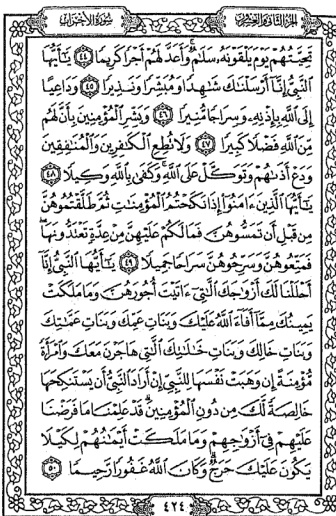 الجزء الثاني والعشرون سورة الأحزاب
تَحِيَّتُهُمْ يَوْمَ يَلْقَوْنَهُ سَلَٰمٌ وَأَعَدَّ لَهُمْ أَجْرًا كَرِيمًا ٤٤ يَٰٓأَيُّهَا
النَّبِيُّ إِنَّآ أَرْسَلْنَٰكَ شَٰهِدًا وَمُبَشِّرًا وَنَذِيرًا ٤٥ وَدَاعِيًا
إِلَى اللَّهِ بِإِذْنِهِ وَسِرَاجًا مُّنِيرًا ٤٦ وَبَشِّرِ الْمُؤْمِنِينَ بِأَنَّ لَهُم
مِّنَ اللَّهِ فَضْلًا كَبِيرًا ٤٧ وَلَا تُطِعِ الْكَٰفِرِينَ وَالْمُنَٰفِقِينَ
وَدَعْ أَذَىٰهُمْ وَتَوَكَّلْ عَلَى اللَّهِ وَكَفَىٰ بِاللَّهِ وَكِيلًا ٤٨
يَٰٓأَيُّهَا الَّذِينَ ءَامَنُوٓا إِذَا نَكَحْتُمُ الْمُؤْمِنَٰتِ ثُمَّ طَلَّقْتُمُوهُنَّ
مِن قَبْلِ أَن تَمَسُّوهُنَّ فَمَا لَكُمْ عَلَيْهِنَّ مِنْ عِدَّةٍ تَعْتَدُّونَهَا
فَمَتِّعُوهُنَّ وَسَرِّحُوهُنَّ سَرَاحًا جَمِيلًا ٤٩ يَٰٓأَيُّهَا النَّبِيُّ إِنَّآ
أَحْلَلْنَا لَكَ أَزْوَٰجَكَ الَّٰتِيٓ ءَاتَيْتَ أُجُورَهُنَّ وَمَا مَلَكَتْ
يَمِينُكَ مِمَّآ أَفَآءَ اللَّهُ عَلَيْكَ وَبَنَاتِ عَمِّكَ وَبَنَاتِ عَمَّٰتِكَ
وَبَنَاتِ خَالِكَ وَبَنَاتِ خَٰلَٰتِكَ الَّٰتِي هَاجَرْنَ مَعَكَ وَامْرَأَةً
مُّؤْمِنَةً إِن وَهَبَتْ نَفْسَهَا لِلنَّبِيِّ إِنْ أَرَادَ النَّبِيُّ أَن يَسْتَنكِحَهَا
خَالِصَةً لَّكَ مِن دُونِ الْمُؤْمِنِينَ قَدْ عَلِمْنَا مَا فَرَضْنَا
عَلَيْهِمْ فِيٓ أَزْوَٰجِهِمْ وَمَا مَلَكَتْ أَيْمَٰنُهُمْ لِكَيْلَا
يَكُونَ عَلَيْكَ حَرَجٌ وَكَانَ اللَّهُ غَفُورًا رَّحِيمًا ٥٠
٤٢٤